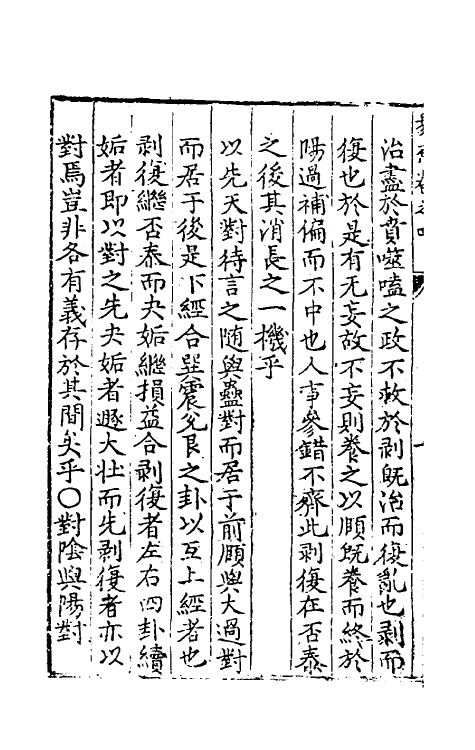 治盡於賁噬嗑之政不救於剥既治而復亂也剥而
復也於是有无妄故不妄則養之以頤既養而終於
陽過補偏而不中也人事參錯不齊此剥復在否泰
之後其消長之一機乎
以先天對待言之隨與蠱對而居于前頤與大過對
而居于後是下經合巽震兌艮之卦以互上經者也
剥復繼否泰而夬姤繼損益合剥復者左右四卦續
姤者即以對之先夬姤者遯大壯而先剥復者亦以
對焉豈非各有義存於其間矣乎〇對陰與陽對